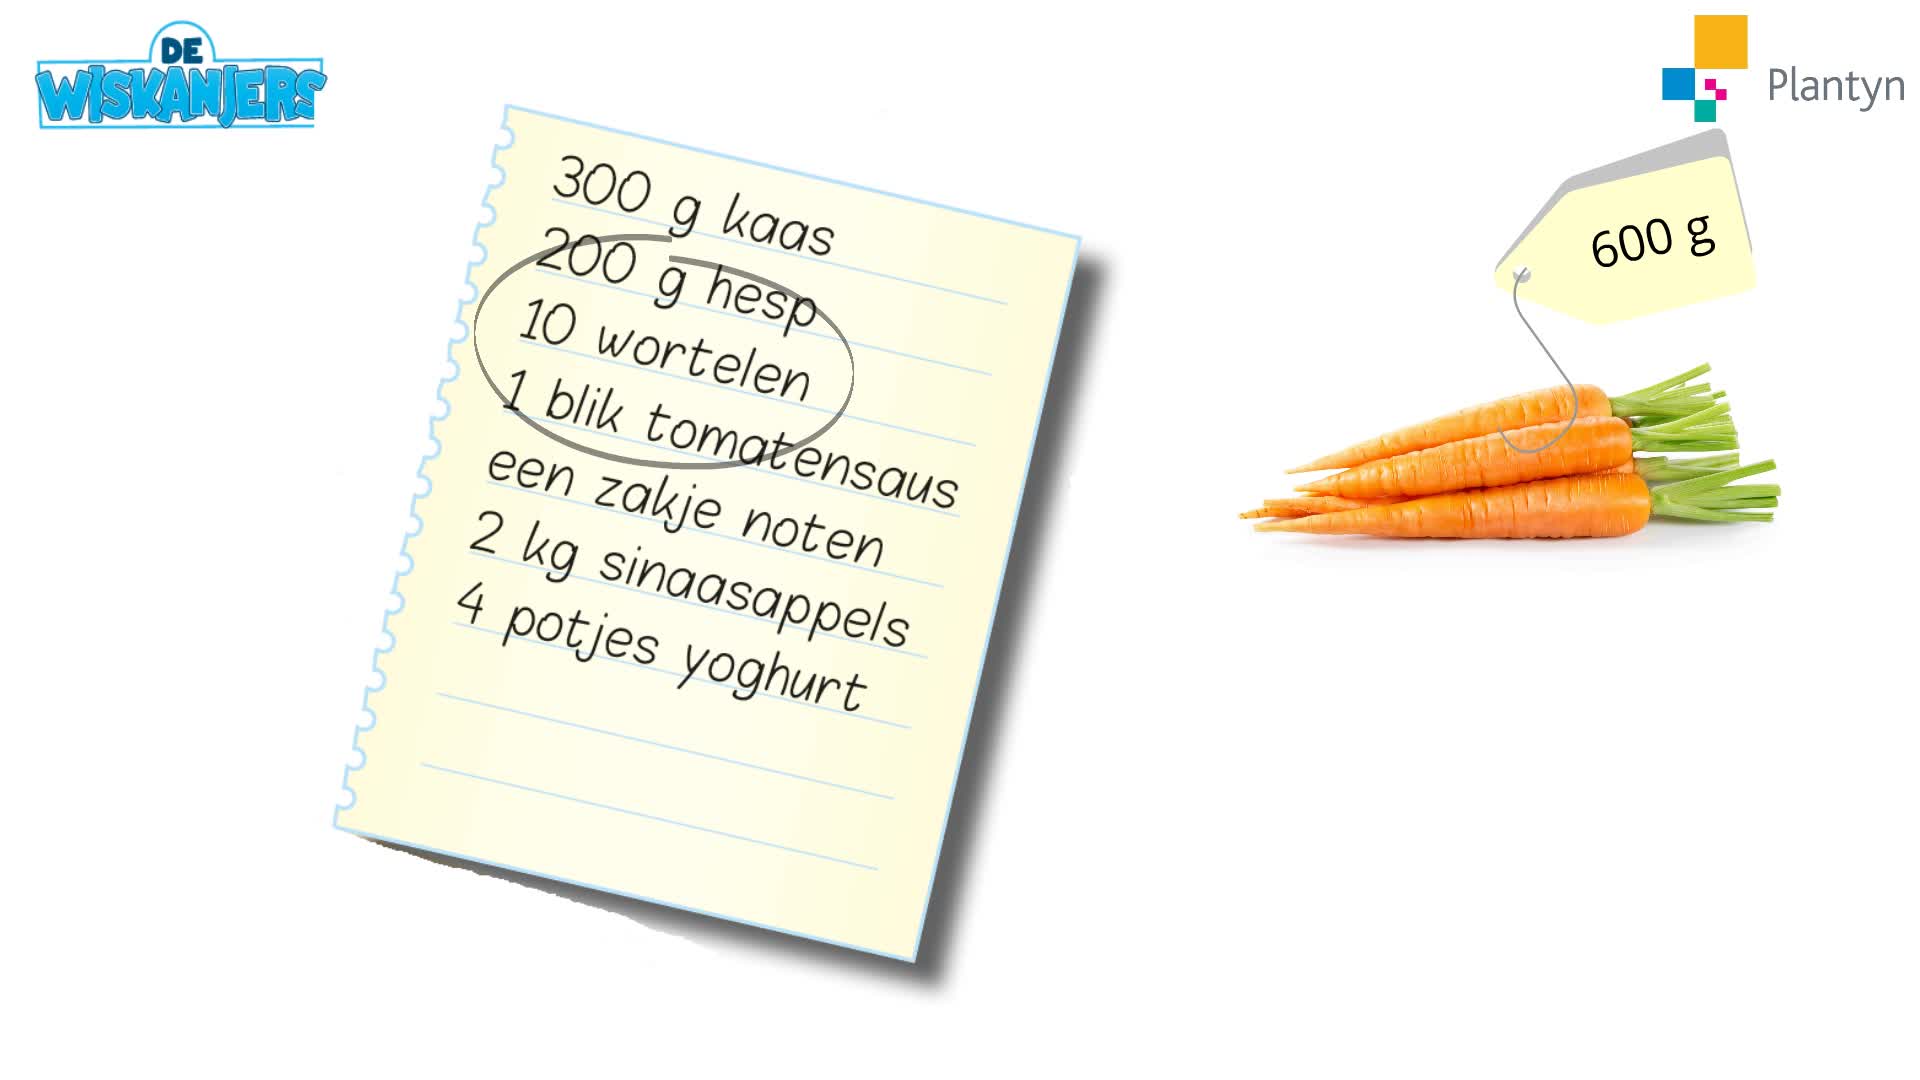 DE
WISKANJERS
Plantyn
300 g kaas
200 g hesp
10 wortelen
1 blik tomatensaus
een zakje noten
2 kg sinaasappels
4 potjes yoghurt
600 g